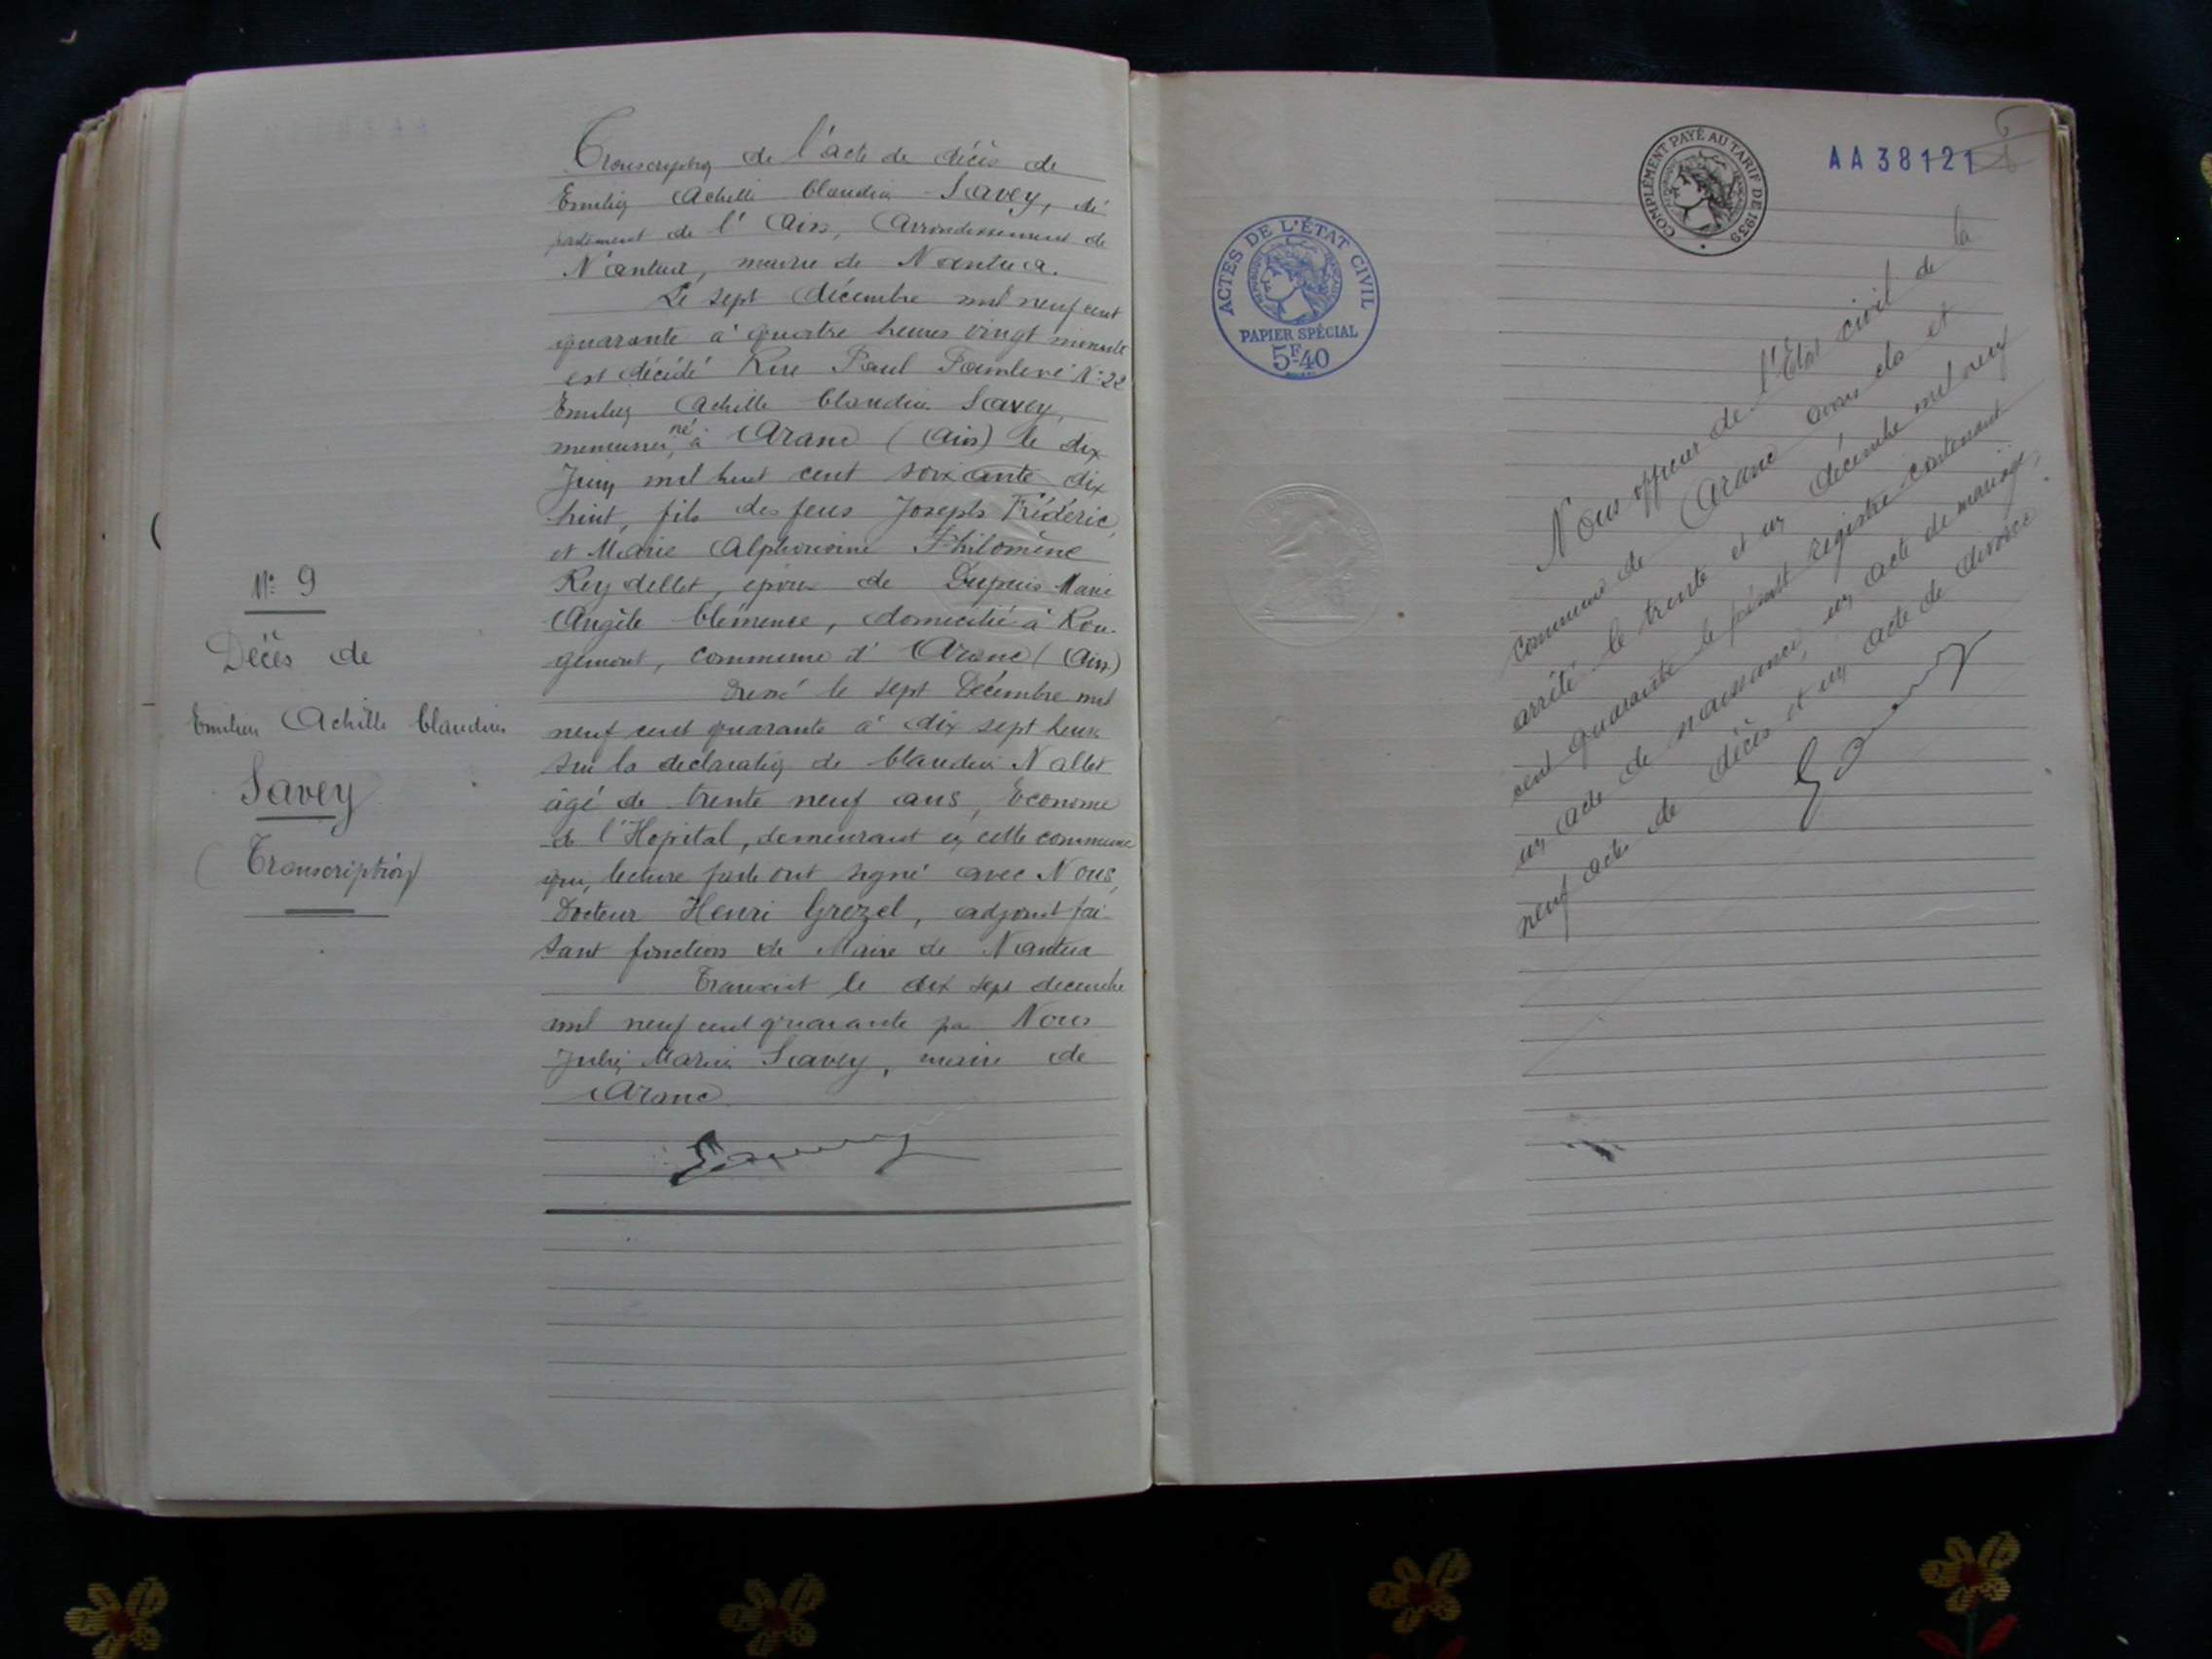 Transcription de l'acte de décès de
Emilien Achille Claudius Savey, dé
partement de l'Ain, Arrondissement de
Nantua, mairie de Nantua.
Le sept décembre mil neuf cent
quarante à quatre heures vingt minutes
est décédé Rue Paul Painlevé N° 22
Emilien Achille Claudius Savey,
menuisier, né à Aranc (Ain) le dix
Juin mil huit cent soixante dix
huit, fils des feus Joseph Frédéric
et Marie Alphonsine Philomène
Reydellet, époux de Dupuis Marie
Angèle Clémence, domicilié à Rou-
gemont, commune d'Aranc (Ain)
Dressé le sept Décembre mil
neuf cent quarante à dix sept heures
sur la déclaration de Claudius Nallet
âgé de trente neuf ans, Econome
de l'Hopital, demeurant en cette commune
qui, lecture faite ont signé avec Nous,
Docteur Henri Grezel, adjoint fai
sant fonction de Maire de Nantua
Transcrit le dix sept décembre
mil neuf cent quarante par Nous
Julien Marius Savey, maire de
Aranc
Savey
N° 9
Décès de
Emilien Achille Claudius
Savey
(Transcription)
COMPLÉMENT PAYÉ AU TARIF DE 1939
AA38121
ACTES DE L'ÉTAT CIVIL
RÉPUBLIQUE FRANÇAISE
PAPIER SPÉCIAL
5F40
Nous officier de l'Etat civil de la
commune de Aranc avons clos et
arrêté le trente et un décembre mil neuf
cent quarante le présent registre contenant
un acte de naissance, un acte de mariage,
neuf actes de décès et un acte de divorce.
Savey